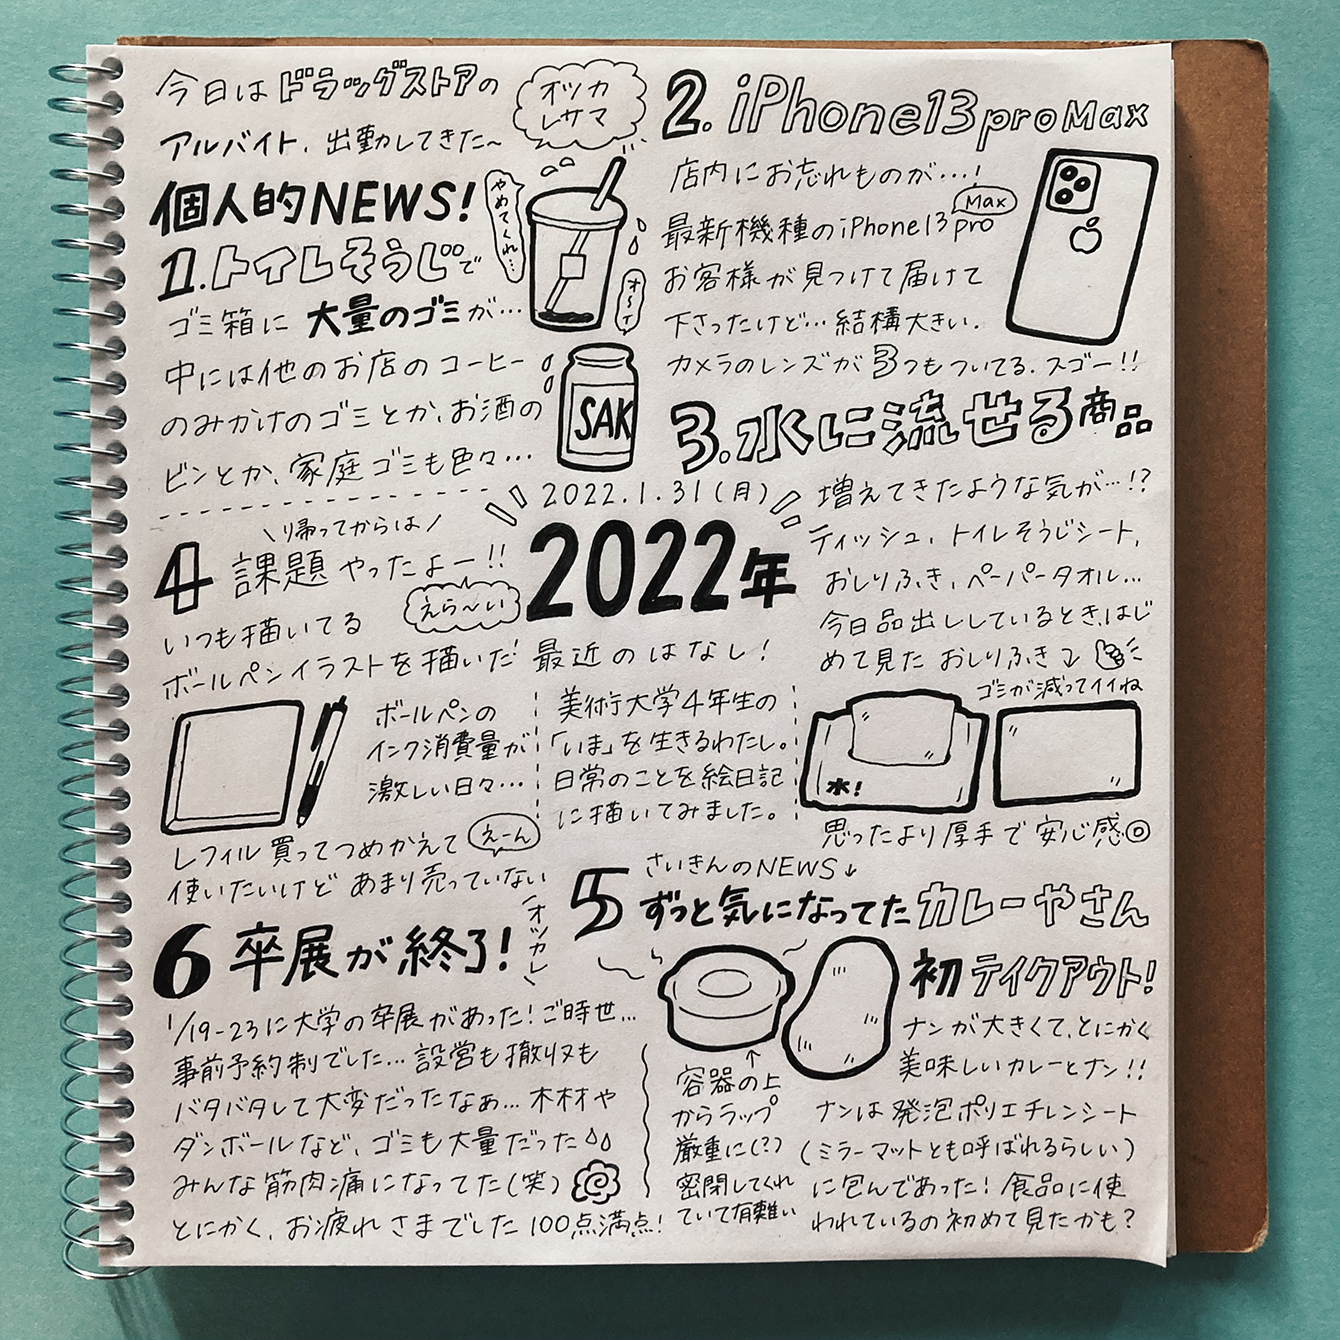 今日はドラッグストアの
アルバイト、出勤してきた〜
オツカ
レサマ
個人的NEWS!
1.トイレそうじで
ゴミ箱に 大量のゴミが…
中には他のお店のコーヒー
のみかけのゴミとか、お酒の
ビンとか、家庭ゴミも色々…
やめてくれ…
オ〜イ
SAK
2. iPhone13 pro Max
店内にお忘れものが…!
最新機種のiPhone13 pro
Max
お客様が見つけて届けて
下さったけど…結構大きい.
カメラのレンズが3つもついてる.スゴー!!
3.水に流せる商品
増えてきたような気が…!?
ティッシュ、トイレそうじシート,
おしりふき、ペーパータオル…
今日品出ししているとき、はじ
めて見た おしりふき
ゴミが減ってイイね
水!
思ったより厚手で安心感◎
2022.1.31(月)
2022年
最近のはなし!
美術大学4年生の
「いま」を生きるわたし。
日常のことを絵日記
に描いてみました。
\帰ってからは/
4 課題やったよー!!
えら〜い
いつも描いてる
ボールペンイラストを描いた
ボールペンの
インク消費量が
激しい日々…
レフィル買ってつめかえて
えーん
使いたいけど あまり売っていない
5 さいきんのNEWS↓
ずっと気になってたカレーやさん
初テイクアウト!
ナンが大きくて、とにかく
美味しいカレーとナン!!
↑
容器の上
からラップ
厳重に(?)
密閉してくれ
ていて有難い
ナンは発泡ポリエチレンシート
(ミラーマットとも呼ばれるらしい)
に包んであった! 食品に使
われているの初めて見たかも?
6 卒展が終了!
\オツカレ/
1/19-23に大学の卒展があった!ご時世…
事前予約制でした…設営も撤収も
バタバタして大変だったなぁ…木材や
ダンボールなど、ゴミも大量だった
みんな筋肉痛になってた(笑)
とにかく、お疲れさまでした 100点満点!